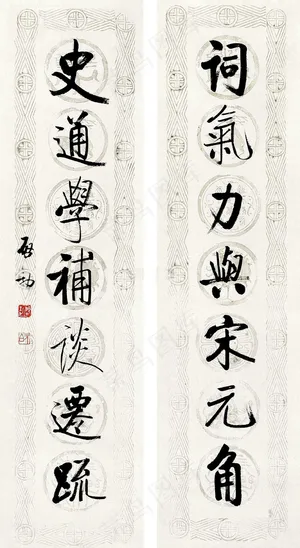 詞氣力與宋元角
史通學補談遷疏
啟功